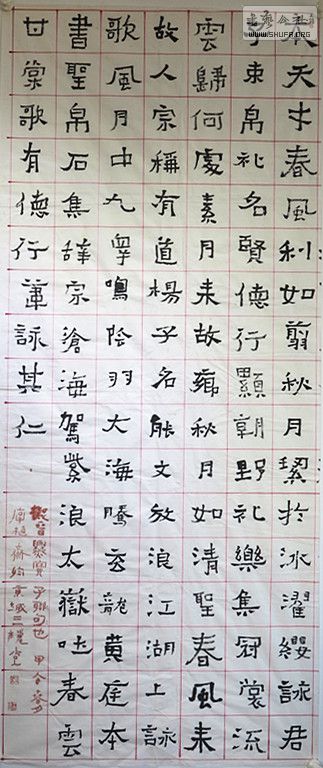 天才春風利如翦秋月潔於冰濯纓詠君
子束帛礼名賢德行顯朝野礼樂集冠裳流
雲歸何處素月来故鄉秋月如清聖春風来
故人宗稱有道楊子名能文放浪江湖上詠
歌風月中九皋鳴陰羽大海騰玄龍黃庭本
書聖帛石集辞宗滄海駕紫浪太嶽吐春雲
甘棠歌有德行葦詠其仁
爨寶子聯句也
WWW.SHUFA.ORG